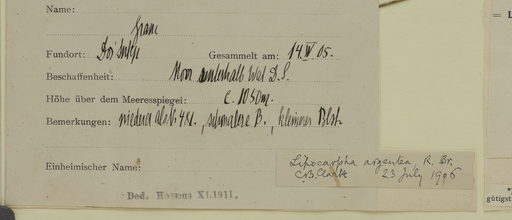 Name:
Gram
Fundort: Doi Sutep Gesammelt am: 14. V 05.
Beschaffenheit: Moor unterhalb Wat D.S.
Höhe über dem Meeresspiegel: c. 1050m.
Bemerkungen: niederer als N 481., schmalere B., kleinere Blst.
Einheimischer Name:
Lipocarpha argentea, R. Br.
C.B. Clarke 23 July 1906
Ded. Hosseus XI.1911.
gütigst